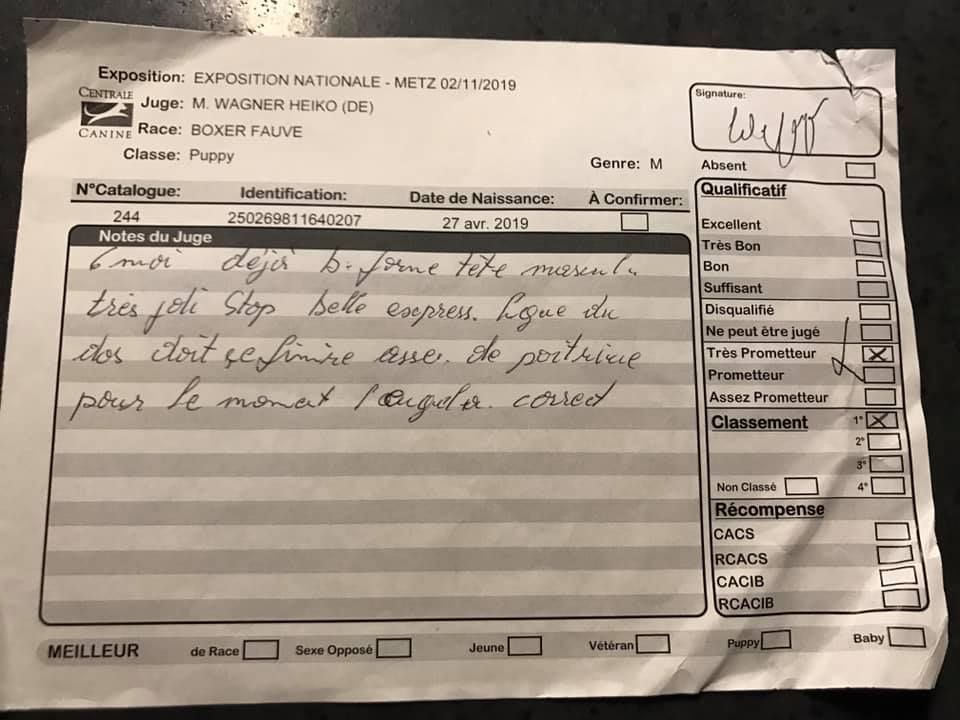 Exposition: EXPOSITION NATIONALE - METZ 02/11/2019
CENTRALE
CANINE
Juge: M. WAGNER HEIKO (DE)
Race: BOXER FAUVE
Classe: Puppy
Genre: M
N°Catalogue: Identification: Date de Naissance: À Confirmer:
244 250269811640207 27 avr. 2019
Notes du Juge
6 moi dejà b. forme tête mascul.
très joli Stop belle express. ligne du
dos doit se finire asse. de poitrine
pour le moment l'angula. correct
Signature:
Absent
Qualificatif
Excellent
Très Bon
Bon
Suffisant
Disqualifié
Ne peut être jugé
Très Prometteur X
Prometteur
Assez Prometteur
Classement 1° X
2°
3°
Non Classé 4°
Récompense
CACS
RCACS
CACIB
RCACIB
MEILLEUR de Race Sexe Opposé Jeune Vétéran Puppy Baby